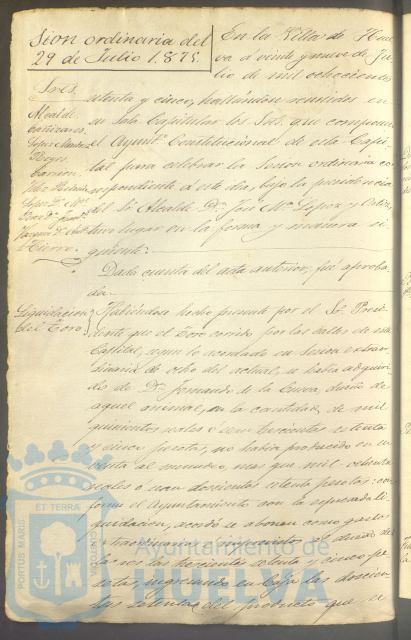 Sion ordinaria del
29 de Julio 1.875.
En la Villa de Huel
va á veinte y nueve de Ju
lio de mil ochocientos
setenta y cinco, hallándose reunidos en
su Sala Capitular los Sres. que componen
el Ayuntº. Constitucional de esta Capi
tal para celebrar la sesion ordinaria co
rrespondiente á este dia, bajo la presidencia
del Sr. Alcalde D. José Mª Lopez y
tuvo lugar en la forma y manera si
guiente:
Sres.
Alcalde
Cañizares
Reyes
Carrion
Lopez D. Mel.
Hierro
Dada cuenta del acta anterior, fué aproba
da.
Liquidacion
del Toro.
Habiendose hecho presente por el Sr. Presi
dente que el Toro corrido por las calles de esta
Capital, segun lo acordado en sesion extraor
dinaria de ocho del actual, se habia adquiri
do de D. Fernando de la Cueva, dueño de
aquel animal, en la cantidad de mil
quinientos reales ó sean trescientas setenta
y cinco pesetas, no habia producido en su
venta al menudeo, mas que mil ochenta
reales ó sean doscientas setenta pesetas: con
forme el Ayuntamiento con la expresada li
quidacion, acordó se abonen como gastos
extraordinarios é imprevistos al dueño de
la res las trescientas setenta y cinco pe
setas, ingresando en Caja las doscien
tas setenta del producto que se
PORTUS MARIS
ET TERRÆ
CUSTODIA
Ayuntamiento de
HUELVA